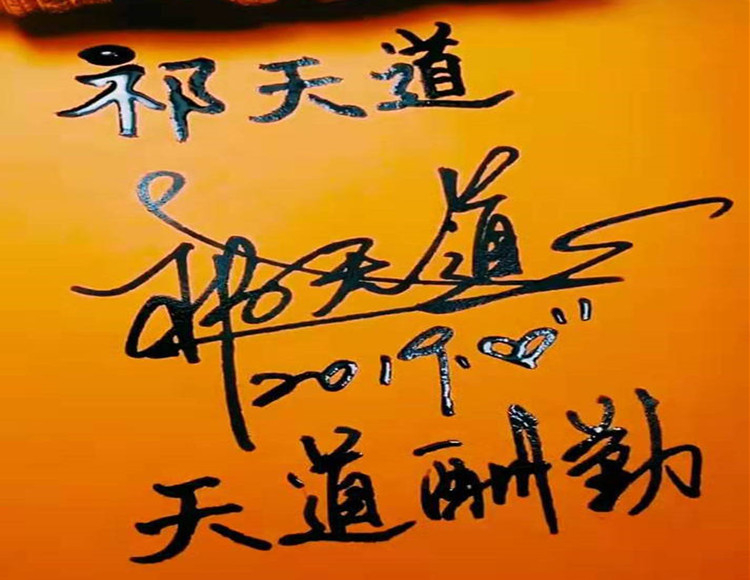 祁天道
祁天道
2019.
天道酬勤